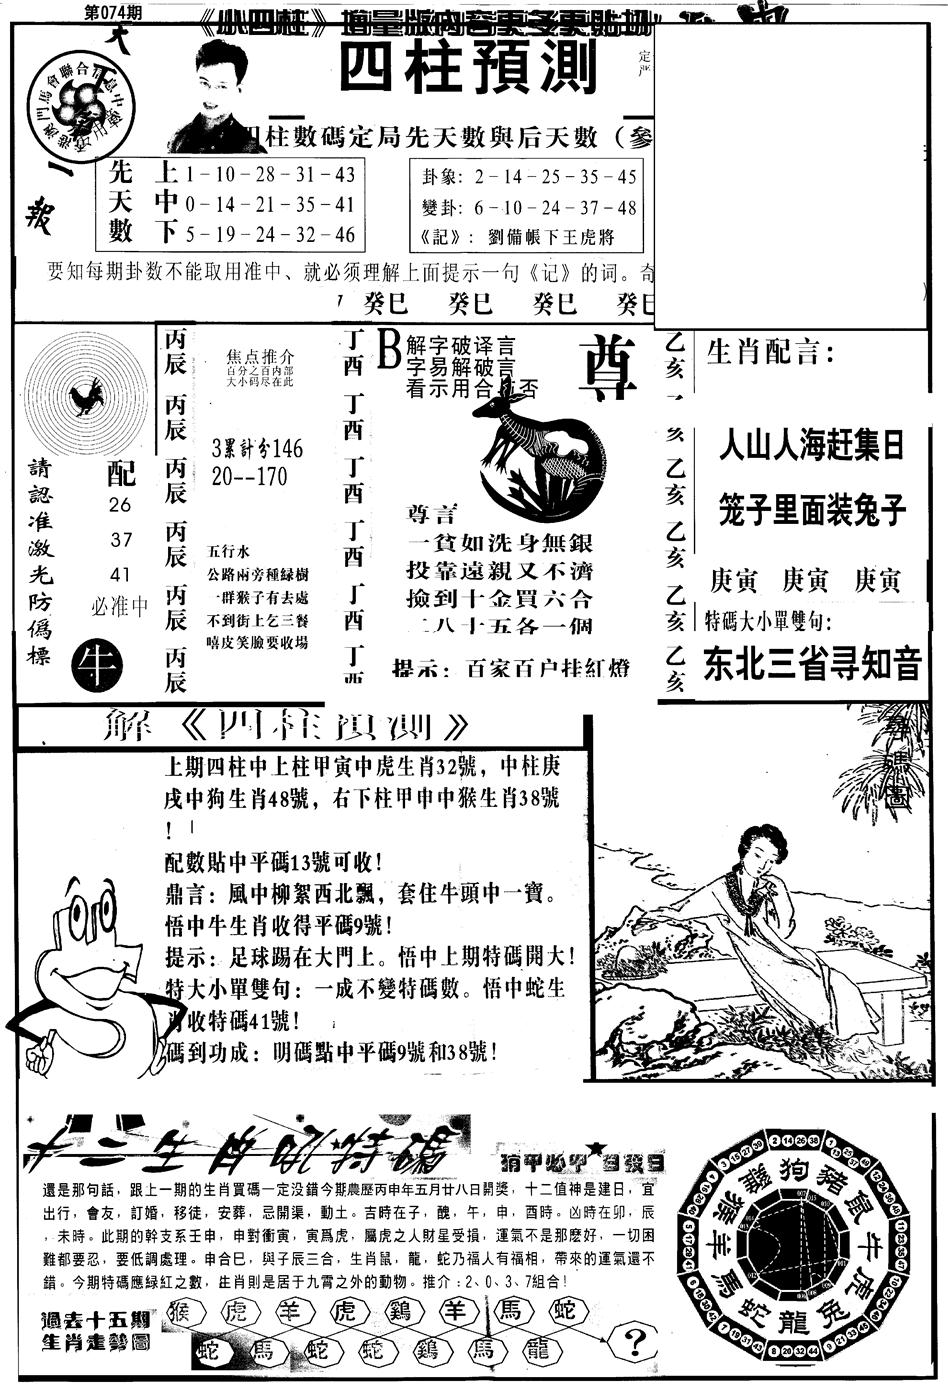 第074期
《小四柱》增量版内容更多更貼切
大
一
報
四柱預測
定
严
四柱數碼定局先天數與后天數（參
先天數
上 1－10－28－31－43
中 0－14－21－35－41
下 5－19－24－32－46
卦象: 2－14－25－35－45
變卦: 6－10－24－37－48
《記》: 劉備帳下王虎將
要知每期卦数不能取用准中、就必须理解上面提示一句《记》的词。奇
癸巳 癸巳 癸巳 癸巳
請認准激光防僞標
配
26
37
41
必准中
牛
丙辰 丙辰 丙辰 丙辰 丙辰 丙辰
焦点推介
百分之百内部
大小码尽在此
3累計分146
20--170
五行水
公路兩旁種緑樹
一群猴子有去處
不到街上乞三餐
嘻皮笑臉要收場
丁酉 丁酉 丁酉 丁酉 丁酉 丁酉
B
解字破译言
字易解破言
看示用合是否
尊
尊言
一貧如洗身無銀
投靠遠親又不濟
撿到十金買六合
二八十五各一個
提示: 百家百户挂紅燈
乙亥 乙亥 乙亥 乙亥 乙亥
生肖配言:
人山人海赶集日
笼子里面装兔子
庚寅 庚寅 庚寅
特碼大小單雙句:
东北三省寻知音
解《四柱預測》
上期四柱中上柱甲寅中虎生肖32號，中柱庚
戌中狗生肖48號，右下柱甲申中猴生肖38號
！
配數貼中平碼13號可收!
鼎言: 風中柳絮西北飄，套住牛頭中一寶。
悟中牛生肖收得平碼9號!
提示: 足球踢在大門上。悟中上期特碼開大!
特大小單雙句: 一成不變特碼數。悟中蛇生
肖收特碼41號!
碼到功成: 明碼點中平碼9號和38號!
尋碼圖
十二生肖吼特碼
猜中必中
還是那句話，跟上一期的生肖買碼一定没錯今期農歷丙申年五月廿八日開獎，十二值神是建日，宜
出行，會友，訂婚，移徒，安葬，忌開渠，動土。吉時在子，醜，午，申，酉時。凶時在卯，辰
，未時。此期的幹支系壬申，申對衝寅，寅爲虎，屬虎之人財星受損，運氣不是那麽好，一切困
難都要忍，要低調處理。申合巳，與子辰三合，生肖鼠，龍，蛇乃福人有福相，帶來的運氣還不
錯。今期特碼應緑紅之數，生肖則是居于九霄之外的動物。推介:2、0、3、7組合!
過去十五期
生肖走勢圖
猴 虎 羊 虎 鷄 羊 馬 蛇
蛇 馬 蛇 蛇 鷄 馬 龍
?
狗 豬 鼠 牛 虎 兔 龍 蛇 馬 羊 猴 雞